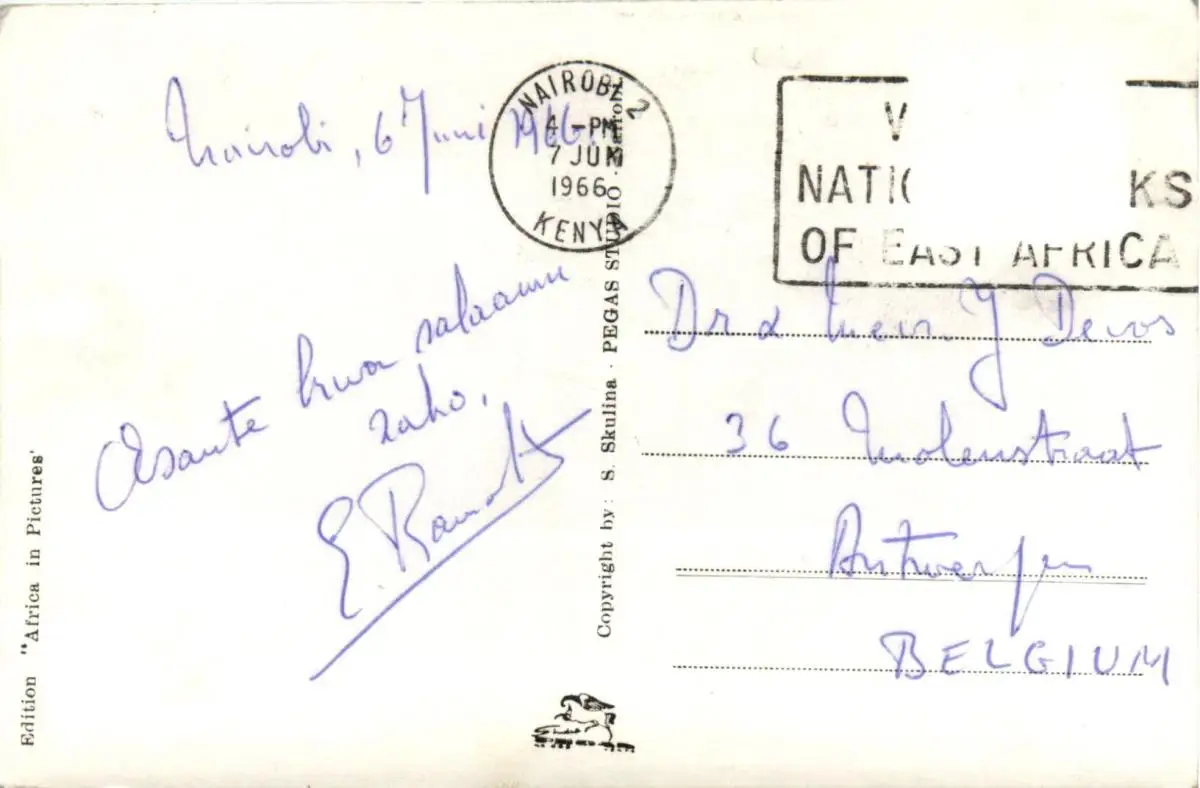 Nairobi, 6 Juni 1966.
Asante kwa salaamu
zako.
E.
NAIROBI 2
4 - PM
7 JUN
1966
KENYA
OF EAST AFRICA
Dr & Mevr Y Devos
36 Molenstraat
Antwerpen
BELGIUM
Edition "Africa in Pictures"
Copyright by: S. Skulina · PEGAS STUDIO · Nairobi